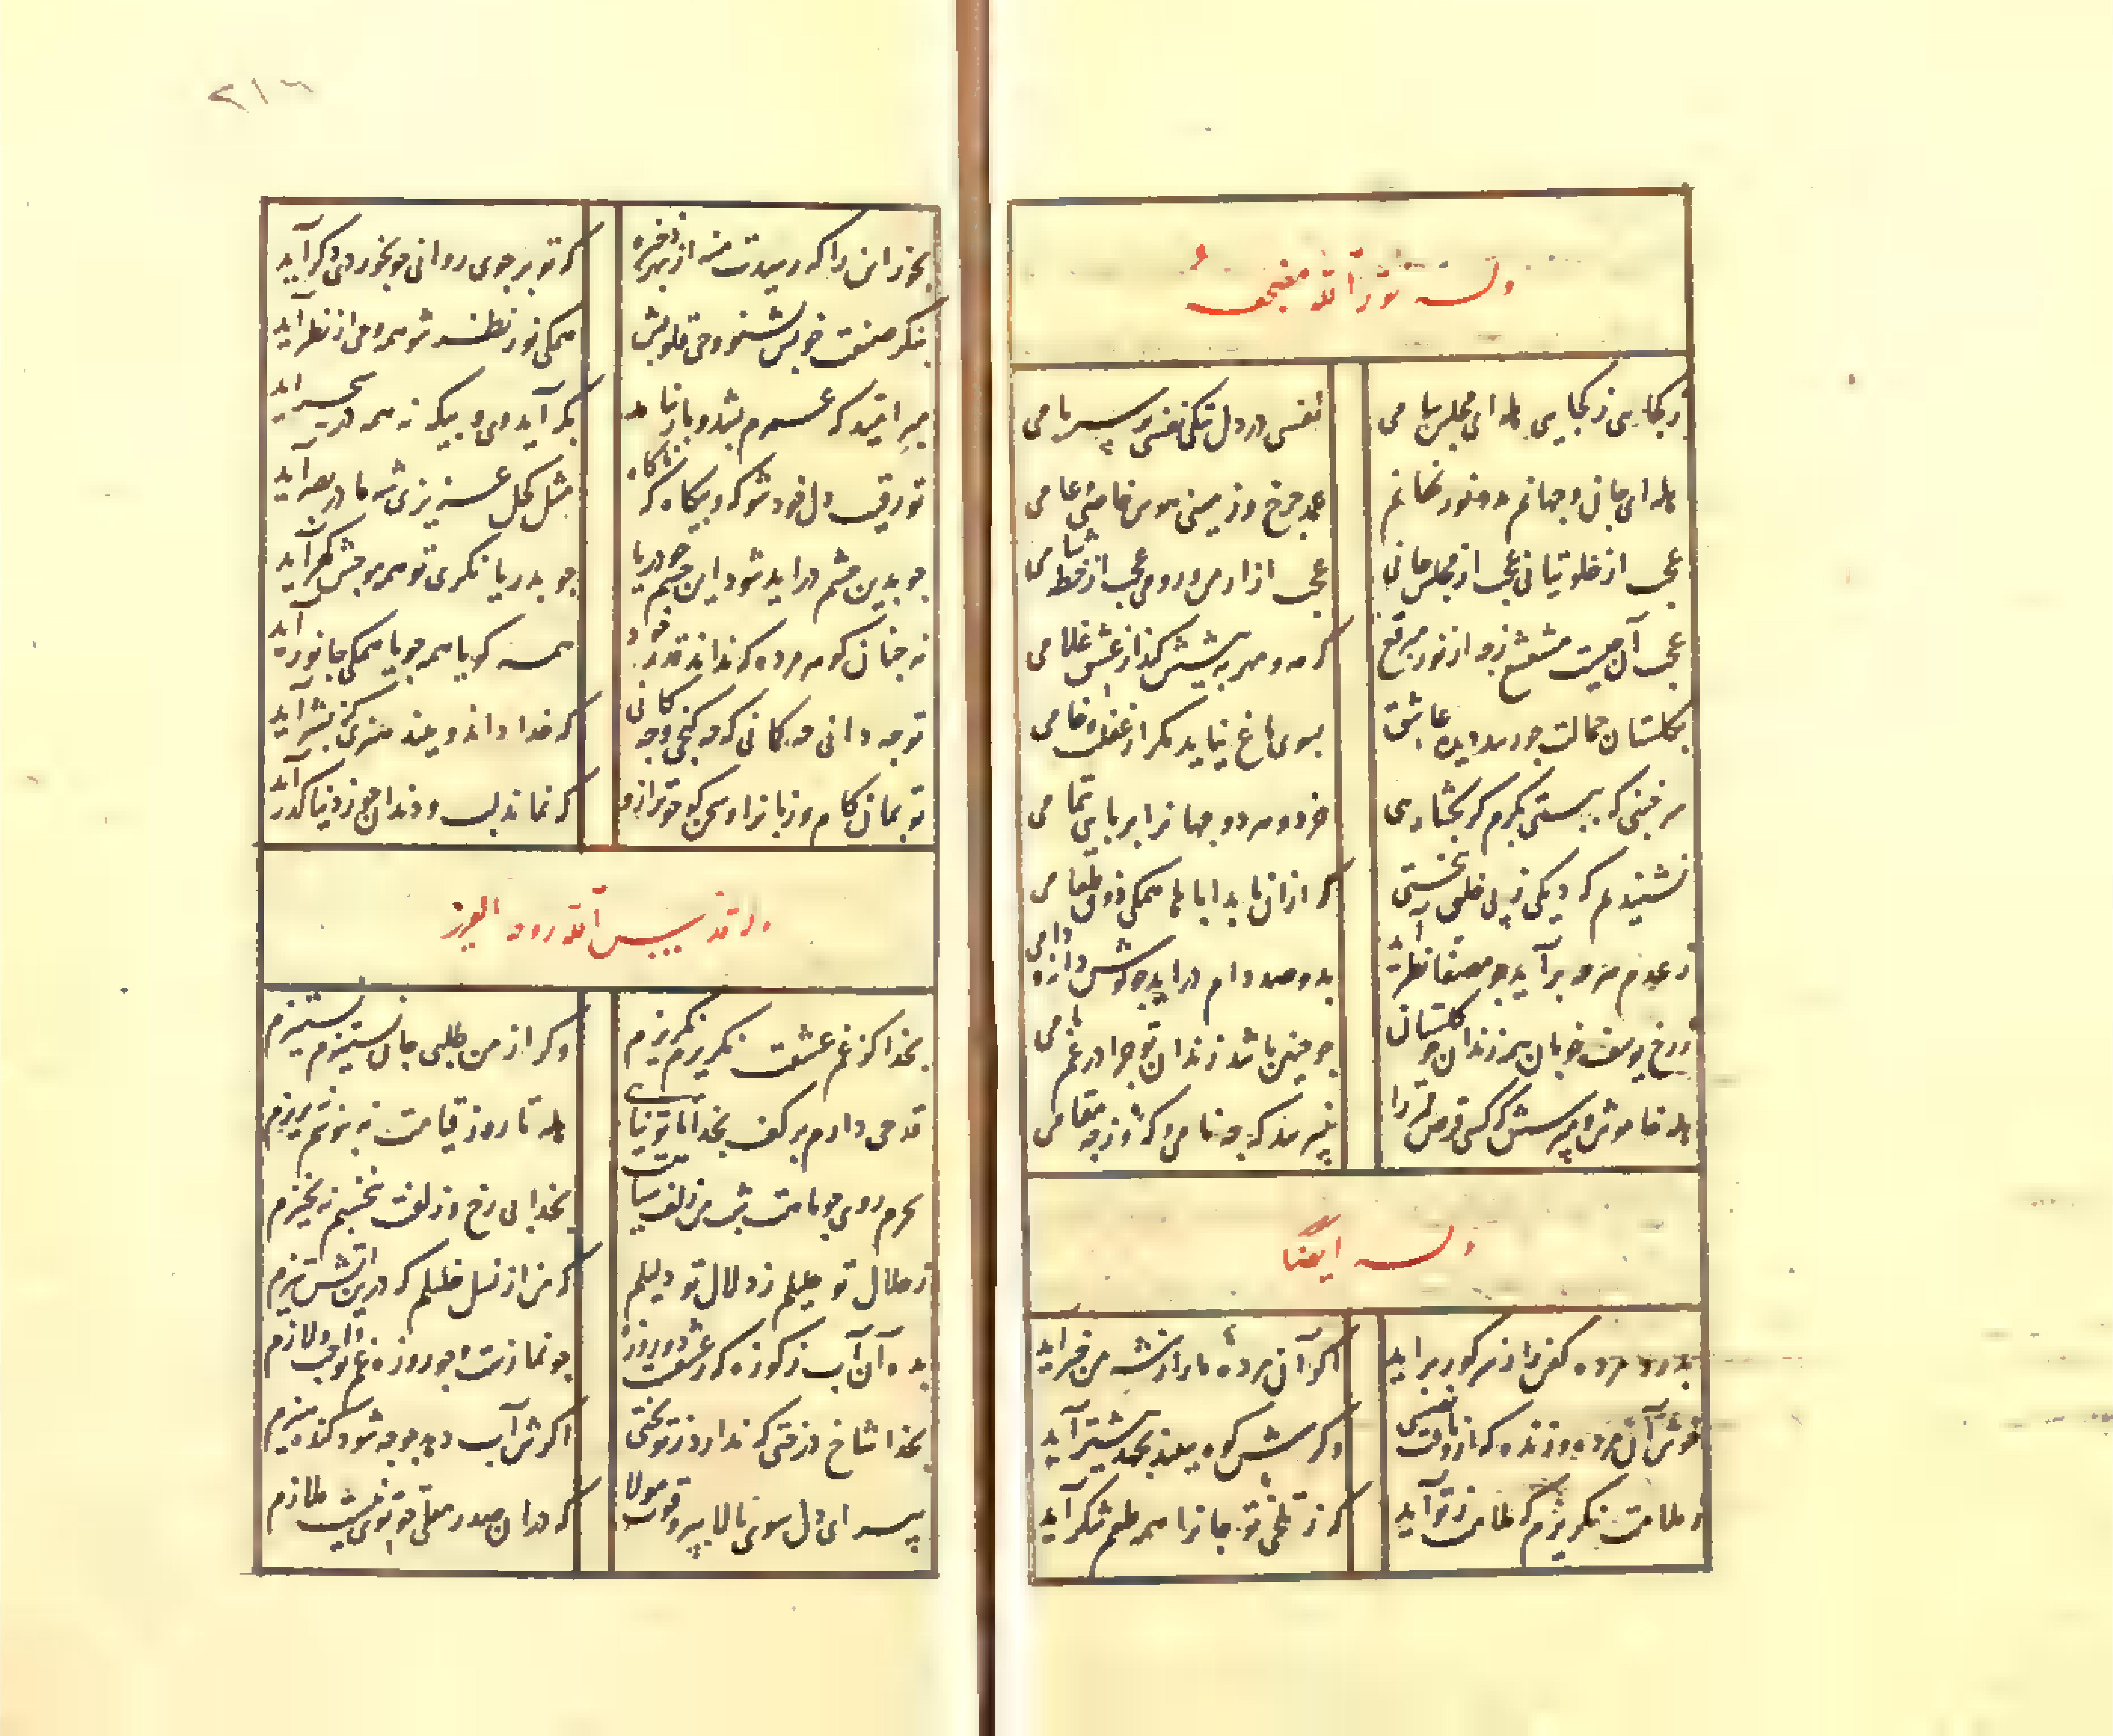 وله نور الله مضجعه
ز کجایی ز کجایی هله ای مجلس سامی
نفسی در دل تنگی نفسی بر سر بامی
هله ای جانی و جهانم مدد نور نهانم
عمد چرخ و زمینی هوس خاصی و عامی
عجب از خلوتیانی عجب از مجلس جانی
عجب از ارمن و رومی عجب از خطه شامی
عجب آن چیست مشعشع رخ از نور مبرقع
که مه و مهر به پیشش کند از عشق غلامی
بگلستان جمالت چو رسد دیده عاشق
بسوی باغ نیاید مگر از غفلت و خامی
سر خنبی که ببستی بکرم گر بگشادی
خرد هر دو جهانرا بربایی تمامی
نشنیدم که دیکی ز پی خلق بپختی
که ازان یابد اباها همگی ذوق طعامی
ز عدم هر چه برآید چو مصفا نظر آید
بدو صد دام دراید چو تواش دانه و دامی
ز رخ یوسف خوبان همه زندان چو گلستان
چو چنین باشد زندان تو چرا در غم وامی
هله خاموش و مپرسش که کسی قرص قمر را
بپرسد که چه نامی و که و ز چه مقامی
وله ایضا
بدرد مرده کفن را ز سر گور براید
اگر آن مرده ما را ز بت من خبر آید
خوش آن مرده و زنده که ازو یافت نفسی
وگر کوه ببیند بجهد پیشتر آید
ز ملامت نگریزم که ملامت ز تو آید
که ز تلخی تو جانرا همه طعم شکر آید
بخور این را که رسیدت منه از بهر ذخیره
که تو بر جوی روانی چو بخوردی دگر آید
بنگر صنعت خوبش بشنو وحی قلوبش
همگی نور نظر شو همه ذوق از نظر آید
مبر امید که عمرم بشد و یار نیامد
بگه آید وی و بیگه نه همه در سحر آید
تو رقیب دل خود شو گه و بیگاه که ناگاه
مثل کحل عزیزی شه ما در بصر آید
چو بدین چشم دراید شود این چشم چو دریا
چو بدریا نگری تو همه موجش گهر آید
نه چنان گوهر مرده که نداند قدر خود
همه گویا همه جویا همگی جانور آید
تو چه دانی چه کانی که چه گنجی و چه کانی
که خدا داند و بیند هنری کز بشر آید
تو بمان کام و زبانرا و سخن گو چو ترازو
که نماند لب و دندان چو ز دنیا گذر آید
وله قدس الله روحه العزیز
بخدا کز غم عشقت نگریزم نگریزم
وگر از من طلبی جان نستیزم نستیزم
قدحی دارم بر کف بخدا تا تو نیایی
هله تا روز قیامت نه بنوشم نه بریزم
سحرم روی چو ماهت شب من زلف سیاهت
بخدا بی رخ و زلفت نخسبم نه بخیزم
ز جلال تو جلیلم ز دلال تو دلیلم
که من از نسل خلیلم که درین آتش تیزم
بده آن آب ز کوزه که نه عشقیست دو روزه
چو نمازست و چو روزه غم تو واجب و لازم
بخدا شاخ درختی که ندارد ز تو بختی
اگرش آب دهد جو چه شود کنده هیزم
بپر ای دل سوی بالا بپر و قوت مولا
که دران صدر معلی چو تویی نیست ملازم
۲۱۶